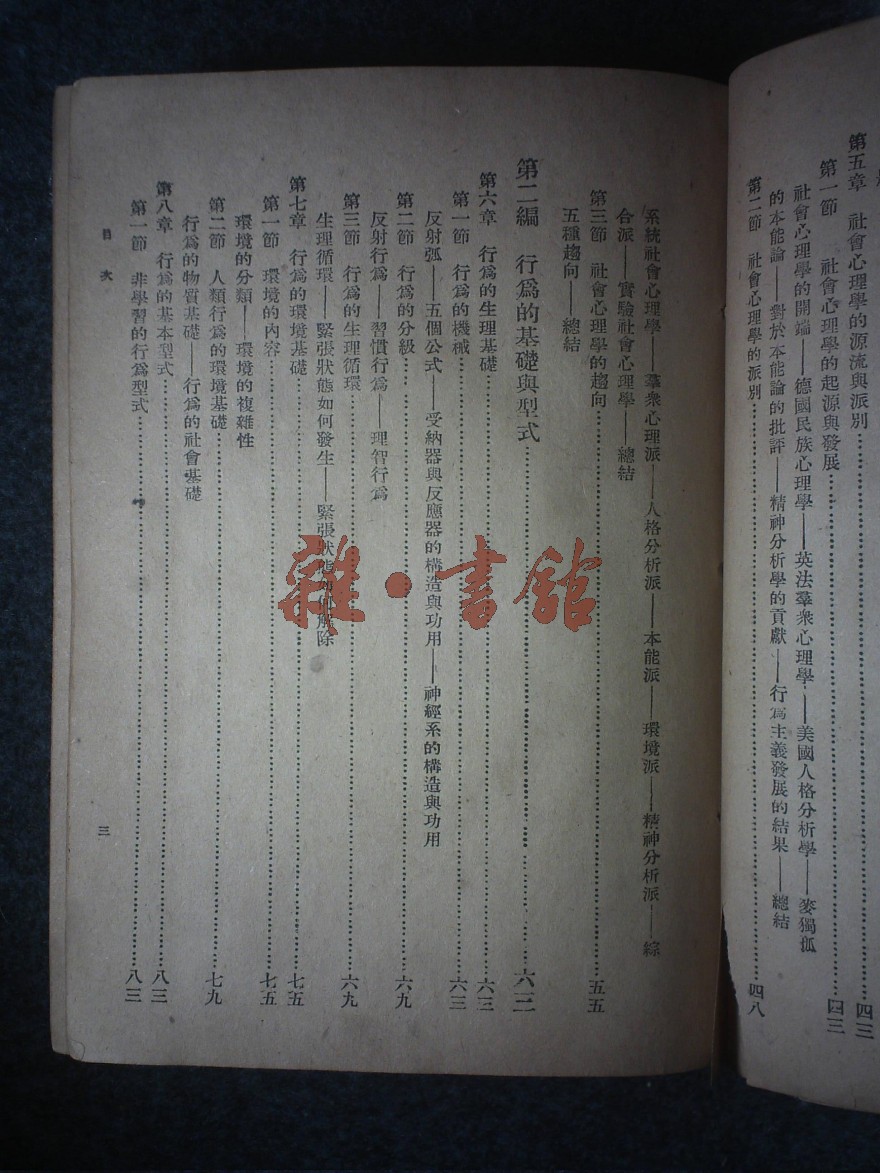 第五章 社會心理學的源流與派別……四三
第一節 社會心理學的起源與發展……四三
社會心理學的開端——德國民族心理學——英法羣衆心理學——美國人格分析學——麥獨孤
的本能論——對於本能論的批評——精神分析學的貢獻——行爲主義發展的結果——總結
第二節 社會心理學的派別……四八
系統社會心理學——羣衆心理派——人格分析派——本能派——環境派——精神分析派——綜
合派——實驗社會心理學——總結
第三節 社會心理學的趨向……五五
五種趨向——總結
第二編 行爲的基礎與型式……六三
第六章 行爲的生理基礎……六三
第一節 行爲的機械……六三
反射弧——五個公式——受納器與反應器的構造與功用——神經系的構造與功用
第二節 行爲的分級……六九
反射行爲——習慣行爲——理智行爲
第三節 行爲的生理循環……六九
生理循環——緊張狀態如何發生——緊張狀態如何解除
第七章 行爲的環境基礎……七五
第一節 環境的內容……七五
環境的分類——環境的複雜性
第二節 人類行爲的環境基礎……七九
行爲的物質基礎——行爲的社會基礎
第八章 行爲的基本型式……八三
第一節 非學習的行爲型式……八三
目次
三
雜·書館